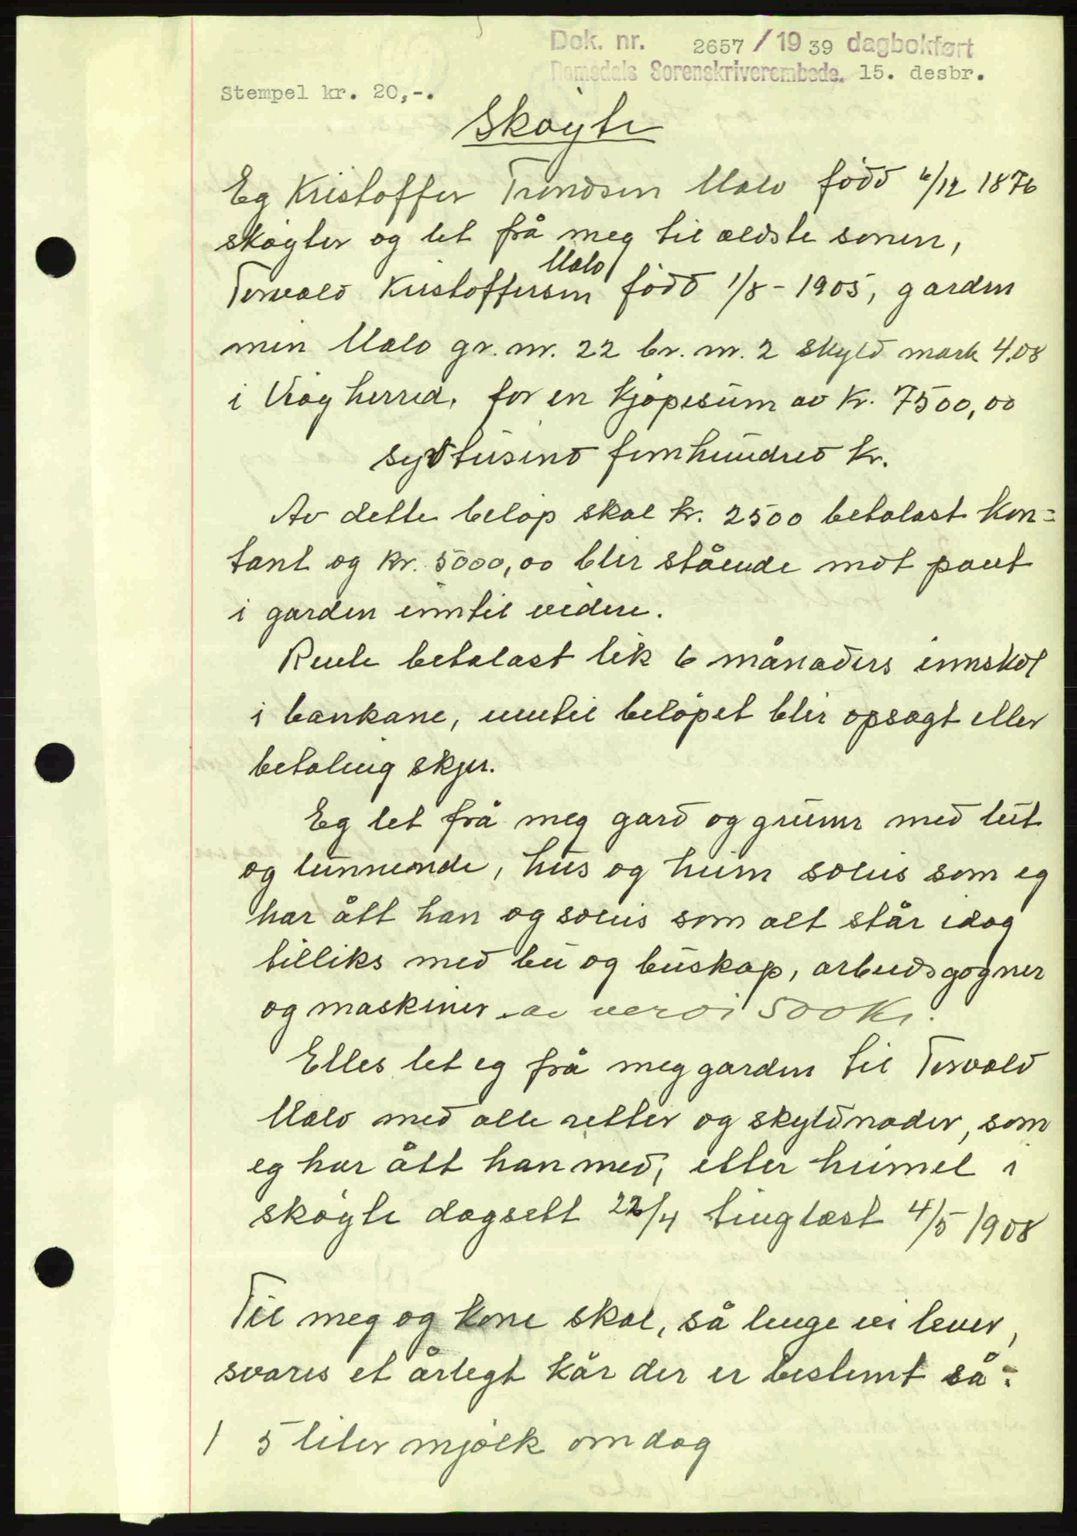 Dok. nr. 2657/1939 dagbokført
Romsdals Sorenskriverembede. 15. desbr.
Stempel kr. 20,-.
Skøyte
Eg Kristoffer Trondsen Malo född 6/12 1876
skøyter og let frå meg til eldste sonen,
Malo
Torvald Kristoffersen född 1/8 - 1905, garden
min Malo gr. nr. 22 br. nr. 2 skyld mark 4.08
i Veøy herred, for en kjøpesum av kr. 7500,00
syvtusind femhundred kr.
Av dette beløp skal kr. 2500 betalast kon=
tant og kr. 5000,00 blir stående mot pant
i garden inntil videre.
Rente betalast lik 6 månaders innskot
i bankane, inntil beløpet blir opsagt eller
betaling skjer.
Eg let frå meg gard og grunn med lut
og lunnende, hus og heim soleis som eg
har ått han og soleis som alt står idag
tilliks med bu og buskap, arbeidsgogner
og maskiner av verdi 500 Kr.
Elles let eg frå meg garden til Torvald
Malo med alle retter og skyldnader, som
eg har ått han med, etter heimel i
skøyte dagsett 22/4 tinglæst 4/5 1908
Til meg og kone skal, så lenge vi lever,
svares et årlegt kår der er bestemt så:
1 5 liter mjølk om dag